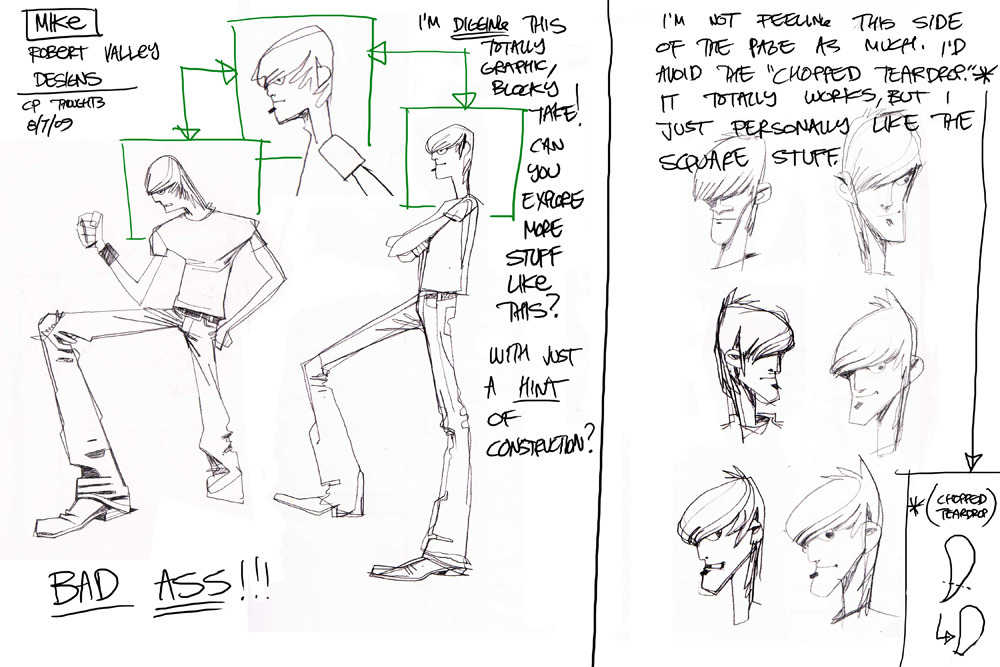 MIKE
ROBERT VALLEY
DESIGNS
CP THOUGHTS
8/7/09
I'M DIGGING THIS
TOTALLY
GRAPHIC,
BLOCKY
TAKE!
CAN
YOU
EXPLORE
MORE
STUFF
LIKE
THIS?
WITH JUST
A HINT
OF
CONSTRUCTION?
BAD ASS!!!
I'M NOT FEELING THIS SIDE
OF THE PAGE AS MUCH. I'D
AVOID THE "CHOPPED TEARDROP."*
IT TOTALLY WORKS, BUT I
JUST PERSONALLY LIKE THE
SQUARE STUFF.
*(CHOPPED
TEARDROP)